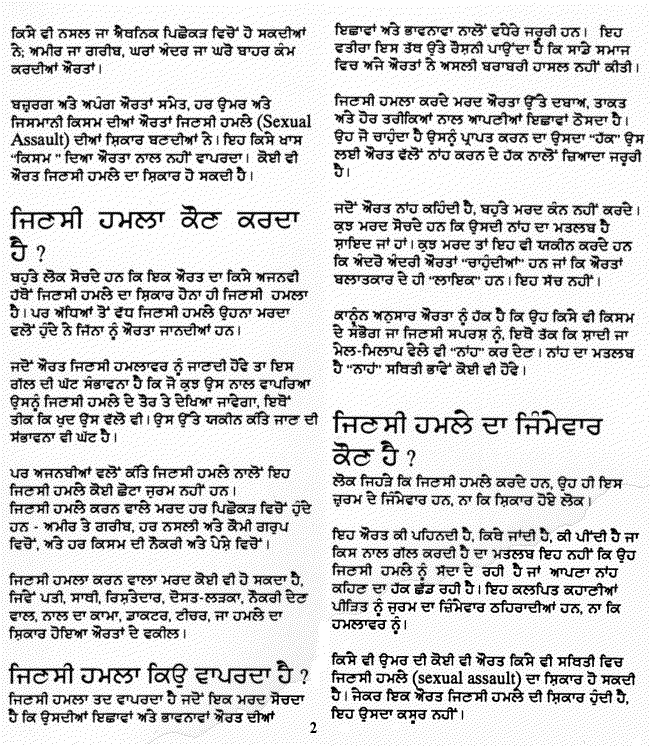 ਕਿਸੇ ਵੀ ਨਸਲ ਜਾ ਐਥਨਿਕ ਪਿਛੋਕੜ ਵਿਚੋਂ ਹੋ ਸਕਦੀਆਂ
ਨੇ; ਅਮੀਰ ਜਾ ਗਰੀਬ, ਘਰਾਂ ਅੰਦਰ ਜਾ ਘਰੋ ਬਾਹਰ ਕੰਮ
ਕਰਦੀਆਂ ਔਰਤਾਂ।
ਬਜ਼ੁਰਗ ਅਤੇ ਅਪੰਗ ਔਰਤਾਂ ਸਮੇਤ, ਹਰ ਉਮਰ ਅਤੇ
ਜਿਸਮਾਨੀ ਕਿਸਮ ਦੀਆਂ ਔਰਤਾਂ ਜਿਣਸੀ ਹਮਲੇ (Sexual
Assault) ਦੀਆਂ ਸ਼ਿਕਾਰ ਬਣਦੀਆਂ ਨੇ। ਇਹ ਕਿਸੇ ਖਾਸ
“ਕਿਸਮ ” ਦਿਆ ਔਰਤਾ ਨਾਲ ਨਹੀਂ ਵਾਪਰਦਾ। ਕੋਈ ਵੀ
ਔਰਤ ਜਿਣਸੀ ਹਮਲੇ ਦਾ ਸ਼ਿਕਾਰ ਹੋ ਸਕਦੀ ਹੈ।
ਜਿਣਸੀ ਹਮਲਾ ਕੌਣ ਕਰਦਾ
ਹੈ ?
ਬਹੁਤੇ ਲੋਕ ਸੋਚਦੇ ਹਨ ਕਿ ਇਕ ਔਰਤ ਦਾ ਕਿਸੇ ਅਜਨਵੀ
ਹੱਥੋਂ ਜਿਣਸੀ ਹਮਲੇ ਦਾ ਸ਼ਿਕਾਰ ਹੋਨਾ ਹੀ ਜਿਣਸੀ ਹਮਲਾ
ਹੈ। ਪਰ ਅੱਧਿਆਂ ਤੋਂ ਵੱਧ ਜਿਣਸੀ ਹਮਲੇ ਉਹਨਾ ਮਰਦਾ
ਵਲੋਂ ਹੁੰਦੇ ਨੇ ਜਿੰਨਾ ਨੂੰ ਔਰਤਾ ਜਾਨਦੀਆਂ ਹਨ।
ਜਦੋਂ ਔਰਤ ਜਿਣਸੀ ਹਮਲਾਵਰ ਨੂੰ ਜਾਣਦੀ ਹੋਵੇ ਤਾ ਇਸ
ਗੱਲ ਦੀ ਘੱਟ ਸੰਭਾਵਨਾ ਹੈ ਕਿ ਜੋ ਕੁਝ ਉਸ ਨਾਲ ਵਾਪਰਿਆ
ਉਸਨੂੰ ਜਿਣਸੀ ਹਮਲੇ ਦੇ ਤੌਰ ਤੇ ਦੇਖਿਆ ਜਾਵੇਗਾ, ਇਥੋਂ
ਤੀਕ ਕਿ ਖੁਦ ਉਸ ਵੱਲੋ ਵੀ। ਉਸ ਉੱਤੇ ਯਕੀਨ ਕੀਤੇ ਜਾਣ ਦੀ
ਸੰਭਾਵਨਾ ਵੀ ਘੱਟ ਹੈ।
ਪਰ ਅਜਨਬੀਆਂ ਵਲੋਂ ਕੀਤੇ ਜਿਣਸੀ ਹਮਲੇ ਨਾਲੋਂ ਇਹ
ਜਿਣਸੀ ਹਮਲੇ ਕੋਈ ਛੋਟਾ ਜੁਰਮ ਨਹੀਂ ਹਨ।
ਜਿਣਸੀ ਹਮਲੇ ਕਰਨ ਵਾਲੇ ਮਰਦ ਹਰ ਪਿਛੋਕੜ ਵਿਚੋਂ ਹੁੰਦੇ
ਹਨ - ਅਮੀਰ ਤੇ ਗਰੀਬ, ਹਰ ਨਸਲੀ ਅਤੇ ਕੌਮੀ ਗਰੁਪ
ਵਿਚੋਂ, ਅਤੇ ਹਰ ਕਿਸਮ ਦੀ ਨੌਕਰੀ ਅਤੇ ਪੇਸ਼ੇ ਵਿਚੋਂ।
ਜਿਣਸੀ ਹਮਲਾ ਕਰਨ ਵਾਲਾ ਮਰਦ ਕੋਈ ਵੀ ਹੋ ਸਕਦਾ ਹੈ,
ਜਿਵੇਂ ਪਤੀ, ਸਾਥੀ, ਰਿਸ਼ਤੇਦਾਰ, ਦੋਸਤ-ਲੜਕਾ, ਨੌਕਰੀ ਦੇਣ
ਵਾਲ, ਨਾਲ ਦਾ ਕਾਮਾ, ਡਾਕਟਰ, ਟੀਚਰ, ਜਾ ਹਮਲੇ ਦਾ
ਸ਼ਿਕਾਰ ਹੋਇਆ ਔਰਤਾਂ ਦੇ ਵਕੀਲ।
ਜਿਣਸੀ ਹਮਲਾ ਕਿਉ ਵਾਪਰਦਾ ਹੈ ?
ਜਿਣਸੀ ਹਮਲਾ ਤਦ ਵਾਪਰਦਾ ਹੈ ਜਦੋਂ ਇਕ ਮਰਦ ਸੋਚਦਾ
ਹੈ ਕਿ ਉਸਦੀਆਂ ਇਛਾਵਾਂ ਅਤੇ ਭਾਵਨਾਵਾਂ ਔਰਤ ਦੀਆਂ
ਇਛਾਵਾਂ ਅਤੇ ਭਾਵਨਾਵਾ ਨਾਲੋਂ ਵਧੇਰੇ ਜਰੂਰੀ ਹਨ। ਇਹ
ਵਤੀਰਾ ਇਸ ਤੱਥ ਉਤੇ ਰੋਸ਼ਨੀ ਪਾਉਂਦਾ ਹੈ ਕਿ ਸਾਡੇ ਸਮਾਜ
ਵਿਚ ਅਜੇ ਔਰਤਾਂ ਨੇ ਅਸਲੀ ਬਰਾਬਰੀ ਹਾਸਲ ਨਹੀਂ ਕੀਤੀ।
ਜਿਣਸੀ ਹਮਲਾ ਕਰਦੇ ਮਰਦ ਔਰਤਾ ਉੱਤੇ ਦਬਾਅ, ਤਾਕਤ
ਅਤੇ ਹੋਰ ਤਰੀਕਿਆਂ ਨਾਲ ਆਪਣੀਆਂ ਇਛਾਵਾਂ ਠੋਸਦਾ ਹੈ।
ਉਹ ਜੋ ਚਾਹੁੰਦਾ ਹੈ ਉਸਨੂੰ ਪ੍ਰਾਪਤ ਕਰਨ ਦਾ ਉਸਦਾ “ਹੱਕ” ਉਸ
ਲਈ ਔਰਤ ਵੱਲੋਂ ਨਾਂਹ ਕਰਨ ਦੇ ਹੱਕ ਨਾਲੋਂ ਜ਼ਿਆਦਾ ਜਰੂਰੀ
ਹੈ।
ਜਦੋਂ ਔਰਤ ਨਾਂਹ ਕਹਿੰਦੀ ਹੈ, ਬਹੁਤੇ ਮਰਦ ਕੰਨ ਨਹੀਂ ਕਰਦੇ।
ਕੁਝ ਮਰਦ ਸੋਚਦੇ ਹਨ ਕਿ ਉਸਦੀ ਨਾਂਹ ਦਾ ਮਤਲਬ ਹੈ
ਸ਼ਾਇਦ ਜਾਂ ਹਾਂ। ਕੁਝ ਮਰਦ ਤਾਂ ਇਹ ਵੀ ਯਕੀਨ ਕਰਦੇ ਹਨ
ਕਿ ਅੰਦਰੋ ਅੰਦਰੀ ਔਰਤਾਂ “ਚਾਹੁੰਦੀਆਂ” ਹਨ ਜਾਂ ਕਿ ਔਰਤਾਂ
ਬਲਾਤਕਾਰ ਦੇ ਹੀ “ਲਾਇਕ” ਹਨ। ਇਹ ਸੱਚ ਨਹੀਂ।
ਕਾਨੂੰਨ ਅਨੁਸਾਰ ਔਰਤਾ ਨੂੰ ਹੱਕ ਹੈ ਕਿ ਉਹ ਕਿਸੇ ਵੀ ਕਿਸਮ
ਦੇ ਸੰਭੋਗ ਜਾ ਜਿਣਸੀ ਸਪਰਸ਼ ਨੂੰ, ਇਥੋ ਤੱਕ ਕਿ ਸ਼ਾਦੀ ਜਾ
ਮੇਲ-ਮਿਲਾਪ ਵੇਲੇ ਵੀ “ਨਾਂਹ” ਕਰ ਦੇਣ। ਨਾਂਹ ਦਾ ਮਤਲਬ
ਹੈ “ਨਾਹਂ” ਸਥਿਤੀ ਭਾਵੇਂ ਕੋਈ ਵੀ ਹੋਵੇ।
ਜਿਣਸੀ ਹਮਲੇ ਦਾ ਜਿੰਮੇਵਾਰ
ਕੌਣ ਹੈ ?
ਲੋਕ ਜਿਹੜੇ ਕਿ ਜਿਣਸੀ ਹਮਲੇ ਕਰਦੇ ਹਨ, ਉਹ ਹੀ ਇਸ
ਜੁਰਮ ਦੇ ਜਿੰਮੇਵਾਰ ਹਨ, ਨਾ ਕਿ ਸ਼ਿਕਾਰ ਹੋਏ ਲੋਕ।
ਇਹ ਔਰਤ ਕੀ ਪਹਿਨਦੀ ਹੈ, ਕਿਥੇ ਜਾਂਦੀ ਹੈ, ਕੀ ਪੀਂਦੀ ਹੈ ਜਾ
ਕਿਸ ਨਾਲ ਗੱਲ ਕਰਦੀ ਹੈ ਦਾ ਮਤਲਬ ਇਹ ਨਹੀਂ ਕਿ ਉਹ
ਜਿਣਸੀ ਹਮਲੇ ਨੂੰ ਸੱਦਾ ਦੇ ਰਹੀ ਹੈ ਜਾਂ ਆਪਣਾ ਨਾਂਹ
ਕਹਿਣ ਦਾ ਹੱਕ ਛੱਡ ਰਹੀ ਹੈ। ਇਹ ਕਲਪਿਤ ਕਹਾਣੀਆਂ
ਪੀੜਿਤ ਨੂੰ ਜੁਰਮ ਦਾ ਜ਼ਿੰਮੇਵਾਰ ਠਹਿਰਾਦੀਆਂ ਹਨ, ਨਾ ਕਿ
ਹਮਲਾਵਰ ਨੂੰ।
ਕਿਸੇ ਵੀ ਉਮਰ ਦੀ ਕੋਈ ਵੀ ਔਰਤ ਕਿਸੇ ਵੀ ਸਥਿਤੀ ਵਿਚ
ਜਿਣਸੀ ਹਮਲੇ (sexual assault) ਦਾ ਸ਼ਿਕਾਰ ਹੋ ਸਕਦੀ
ਹੈ। ਜੇਕਰ ਇਕ ਔਰਤ ਜਿਣਸੀ ਹਮਲੇ ਦੀ ਸ਼ਿਕਾਰ ਹੁੰਦੀ ਹੈ,
ਇਹ ਉਸਦਾ ਕਸੂਰ ਨਹੀਂ।
2